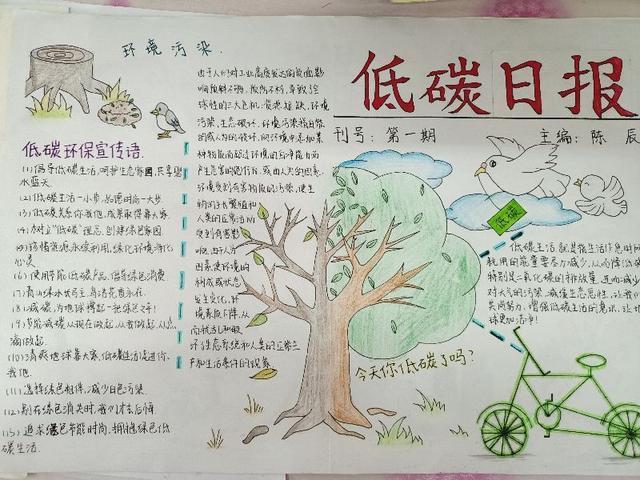 环境污染
低碳日报
刊号：第一期
主编：陈辰
低碳环保宣传语
(1)倡导低碳生活,呵护生态家园,共享碧
水蓝天
(2)低碳生活一小步,品德时尚一大步
(3)低碳关系你我他,成果家得靠大家
(4)树立"低碳"理念,创建绿色家园
(5)珍惜资源永续利用,绿化环境净化
心灵
(6)使用节能低碳产品,倡导绿色消费
(7)青山绿水妆乌,鸟语花香永在
(8)减碳,为地球撑起一把绿色伞!
(9)节能减碳从现在做起,从我做起,从点
滴做起
(10)清爽地球靠大家,低碳生活促进你
我他
(11)选择绿色相伴,减少白色污染
(12)别在绿色消失时,我们才去后悔
(13)追求绿色节能时尚,拥抱绿色低
碳生活
由于人们对工业高度发达的负面影
响预料不够,预防不利,导致了全
球性的三大危机:资源短缺、环境
污染、生态破坏.环境污染指自然
的或人为的破坏,向环境中添加某
种物质而超过环境的自净能力而
产生危害的行为.或由人为的因素,
环境受到有害物质的污染,使生
物的生长繁殖和
人类的正常生活
受到有害影响
由于人为
因素使环境的
构成或状态
发生变化,环
境素质下降,从
而扰乱和破
坏生态系统和人类的正常生
产和生活条件的现象
低碳
低碳生活,就是指生活作息时所
耗用的能量要尽力减少,从而降低碳
特别是二氧化碳的排放量,进而减少
对大气的污染,减缓生态恶化,让我们
共同努力,增强低碳生活的意识,让地
球更加洁净!
今天你低碳了吗?